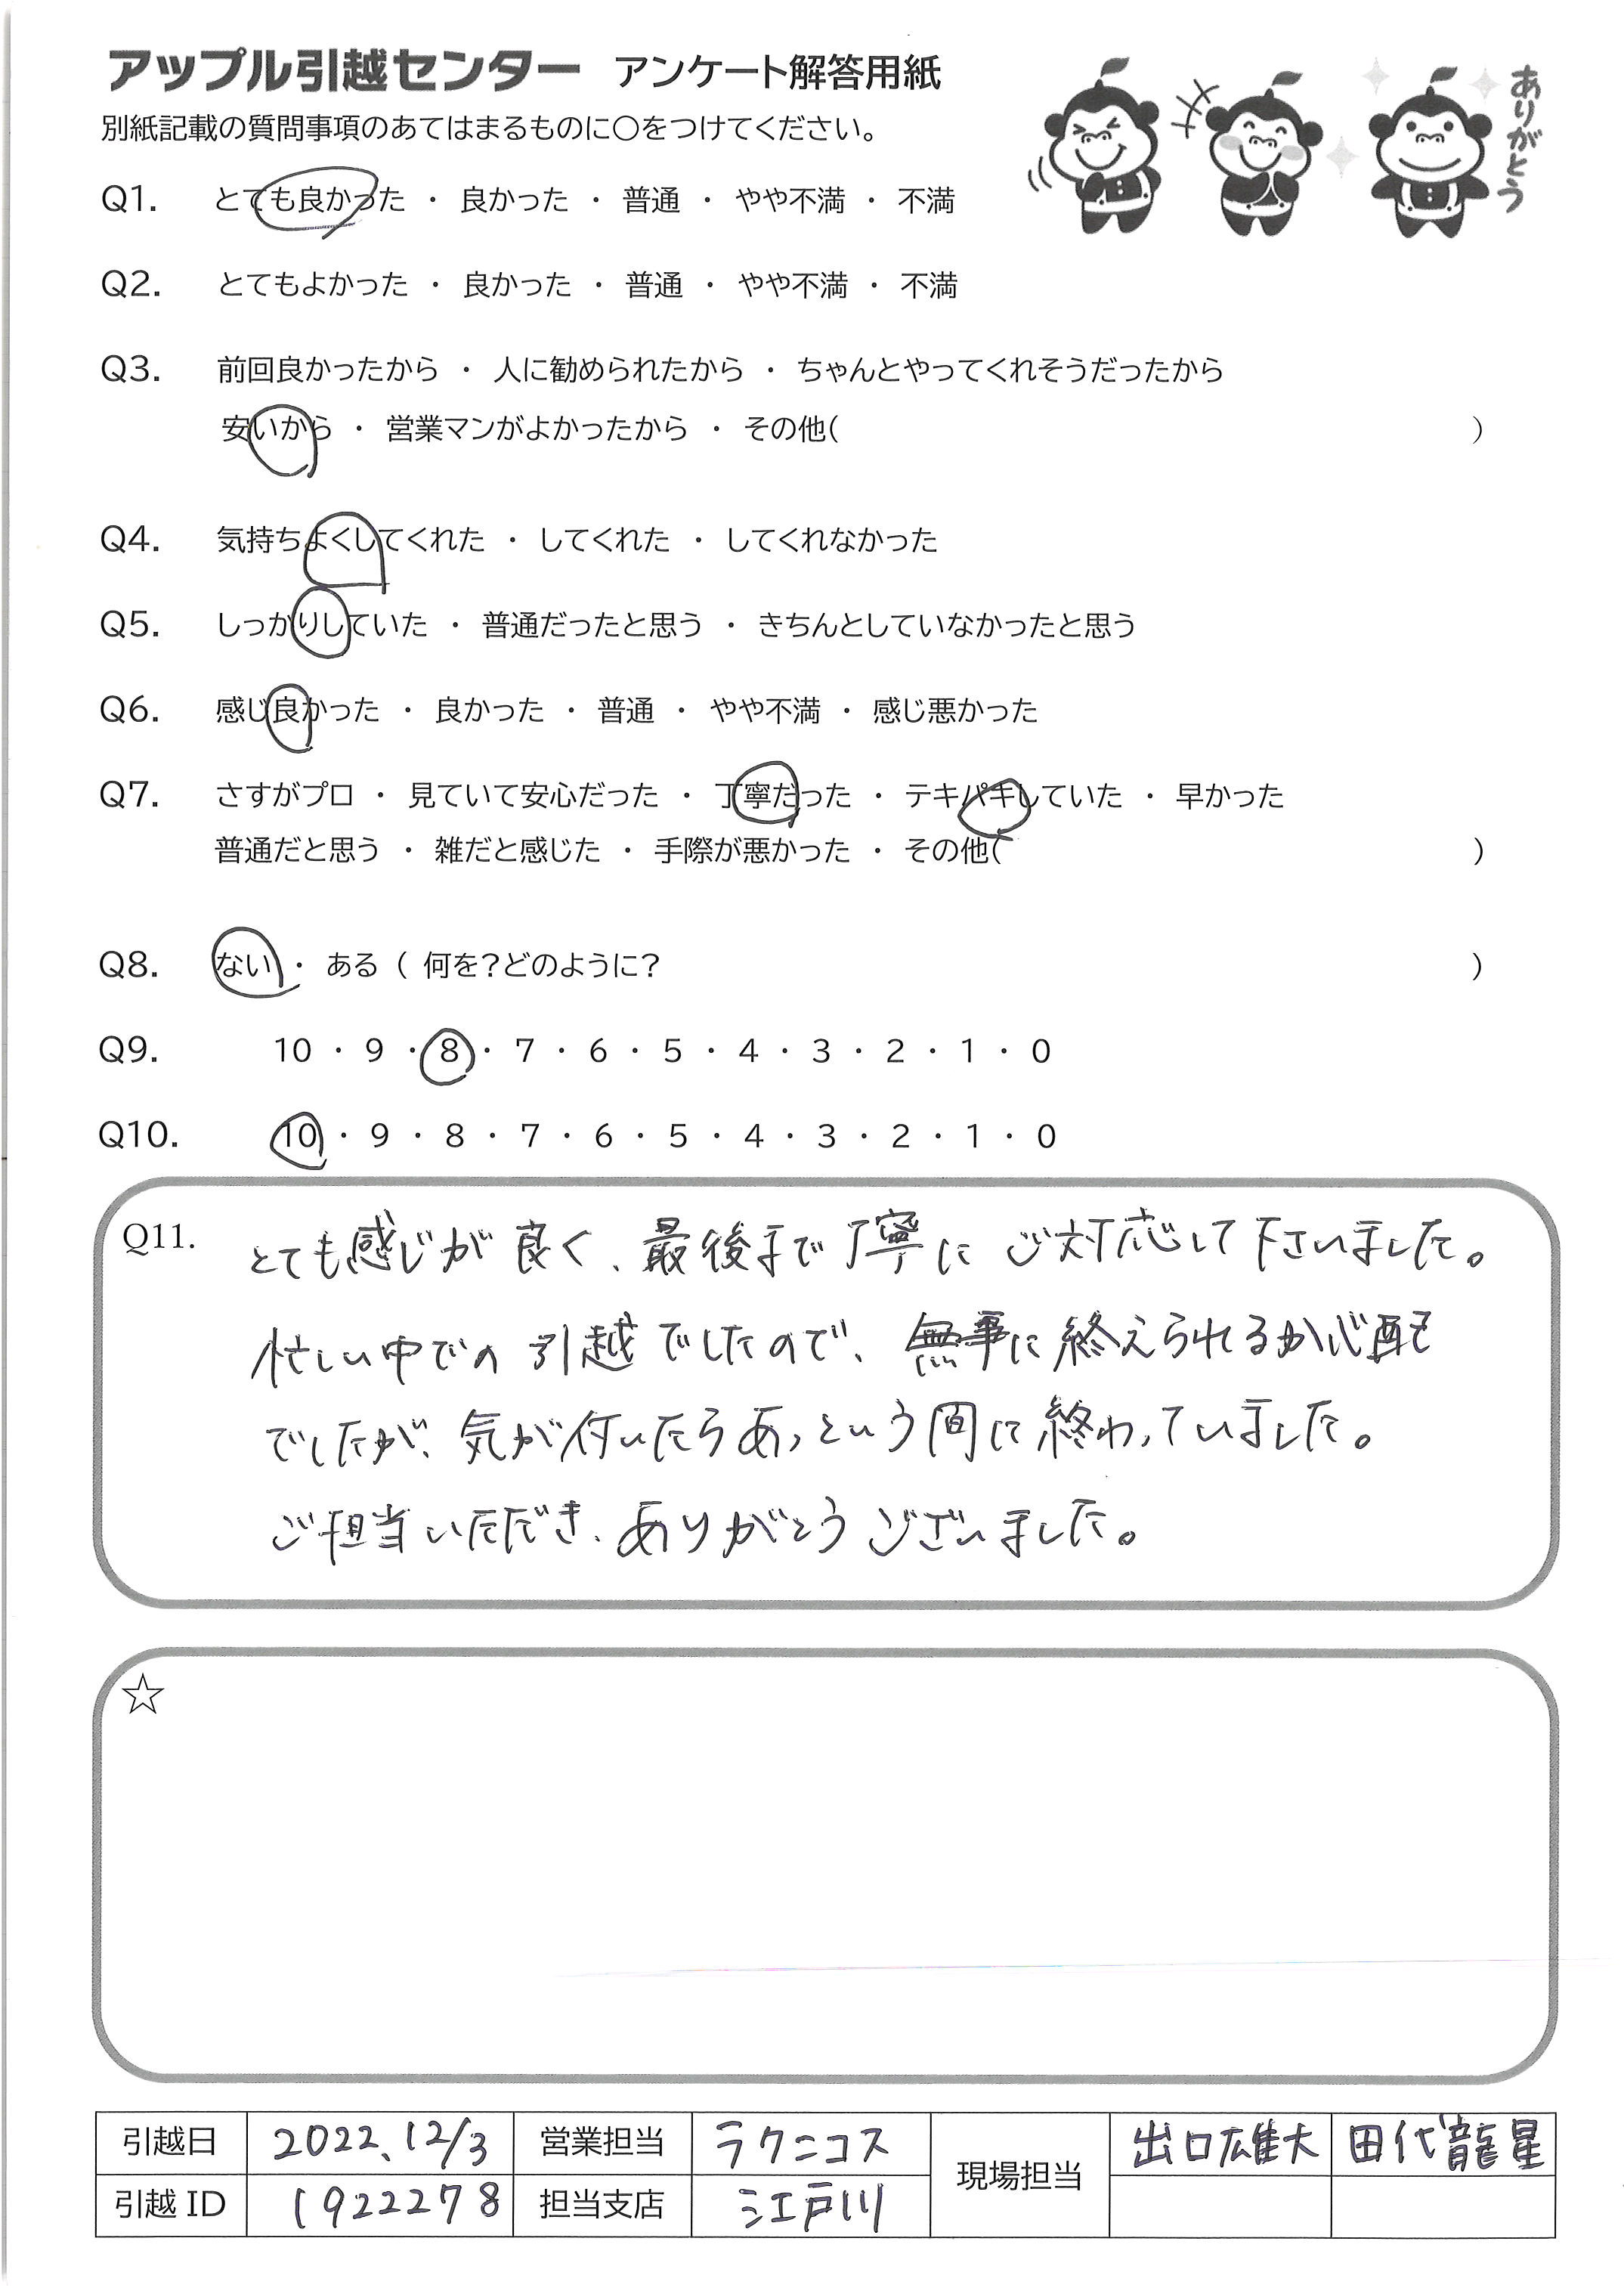 アップル引越センター アンケート解答用紙
ありがとう
別紙記載の質問事項のあてはまるものに○をつけてください。
Q1. とても良かった ・ 良かった ・ 普通 ・ やや不満 ・ 不満
Q2. とてもよかった ・ 良かった ・ 普通 ・ やや不満 ・ 不満
Q3. 前回良かったから ・ 人に勧められたから ・ ちゃんとやってくれそうだったから
安いから ・ 営業マンがよかったから ・ その他( )
Q4. 気持ちよくしてくれた ・ してくれた ・ してくれなかった
Q5. しっかりしていた ・ 普通だったと思う ・ きちんとしていなかったと思う
Q6. 感じ良かった ・ 良かった ・ 普通 ・ やや不満 ・ 感じ悪かった
Q7. さすがプロ ・ 見ていて安心だった ・ 丁寧だった ・ テキパキしていた ・ 早かった
普通だと思う ・ 雑だと感じた ・ 手際が悪かった ・ その他( )
Q8. ない ・ ある ( 何を?どのように? )
Q9. 10 ・ 9 ・ 8 ・ 7 ・ 6 ・ 5 ・ 4 ・ 3 ・ 2 ・ 1 ・ 0
Q10. 10 ・ 9 ・ 8 ・ 7 ・ 6 ・ 5 ・ 4 ・ 3 ・ 2 ・ 1 ・ 0
Q11. とても感じが良く、最後まで丁寧にご対応して下さいました。
忙しい中での引越でしたので、無事に終えられるか心配
でしたが、気が付いたらあっという間に終わっていました。
ご担当いただき、ありがとうございました。
☆
引越日 2022、12/3 営業担当 ラクニコス 現場担当 出口雄大 田代龍星
引越 ID 1922278 担当支店 江戸川